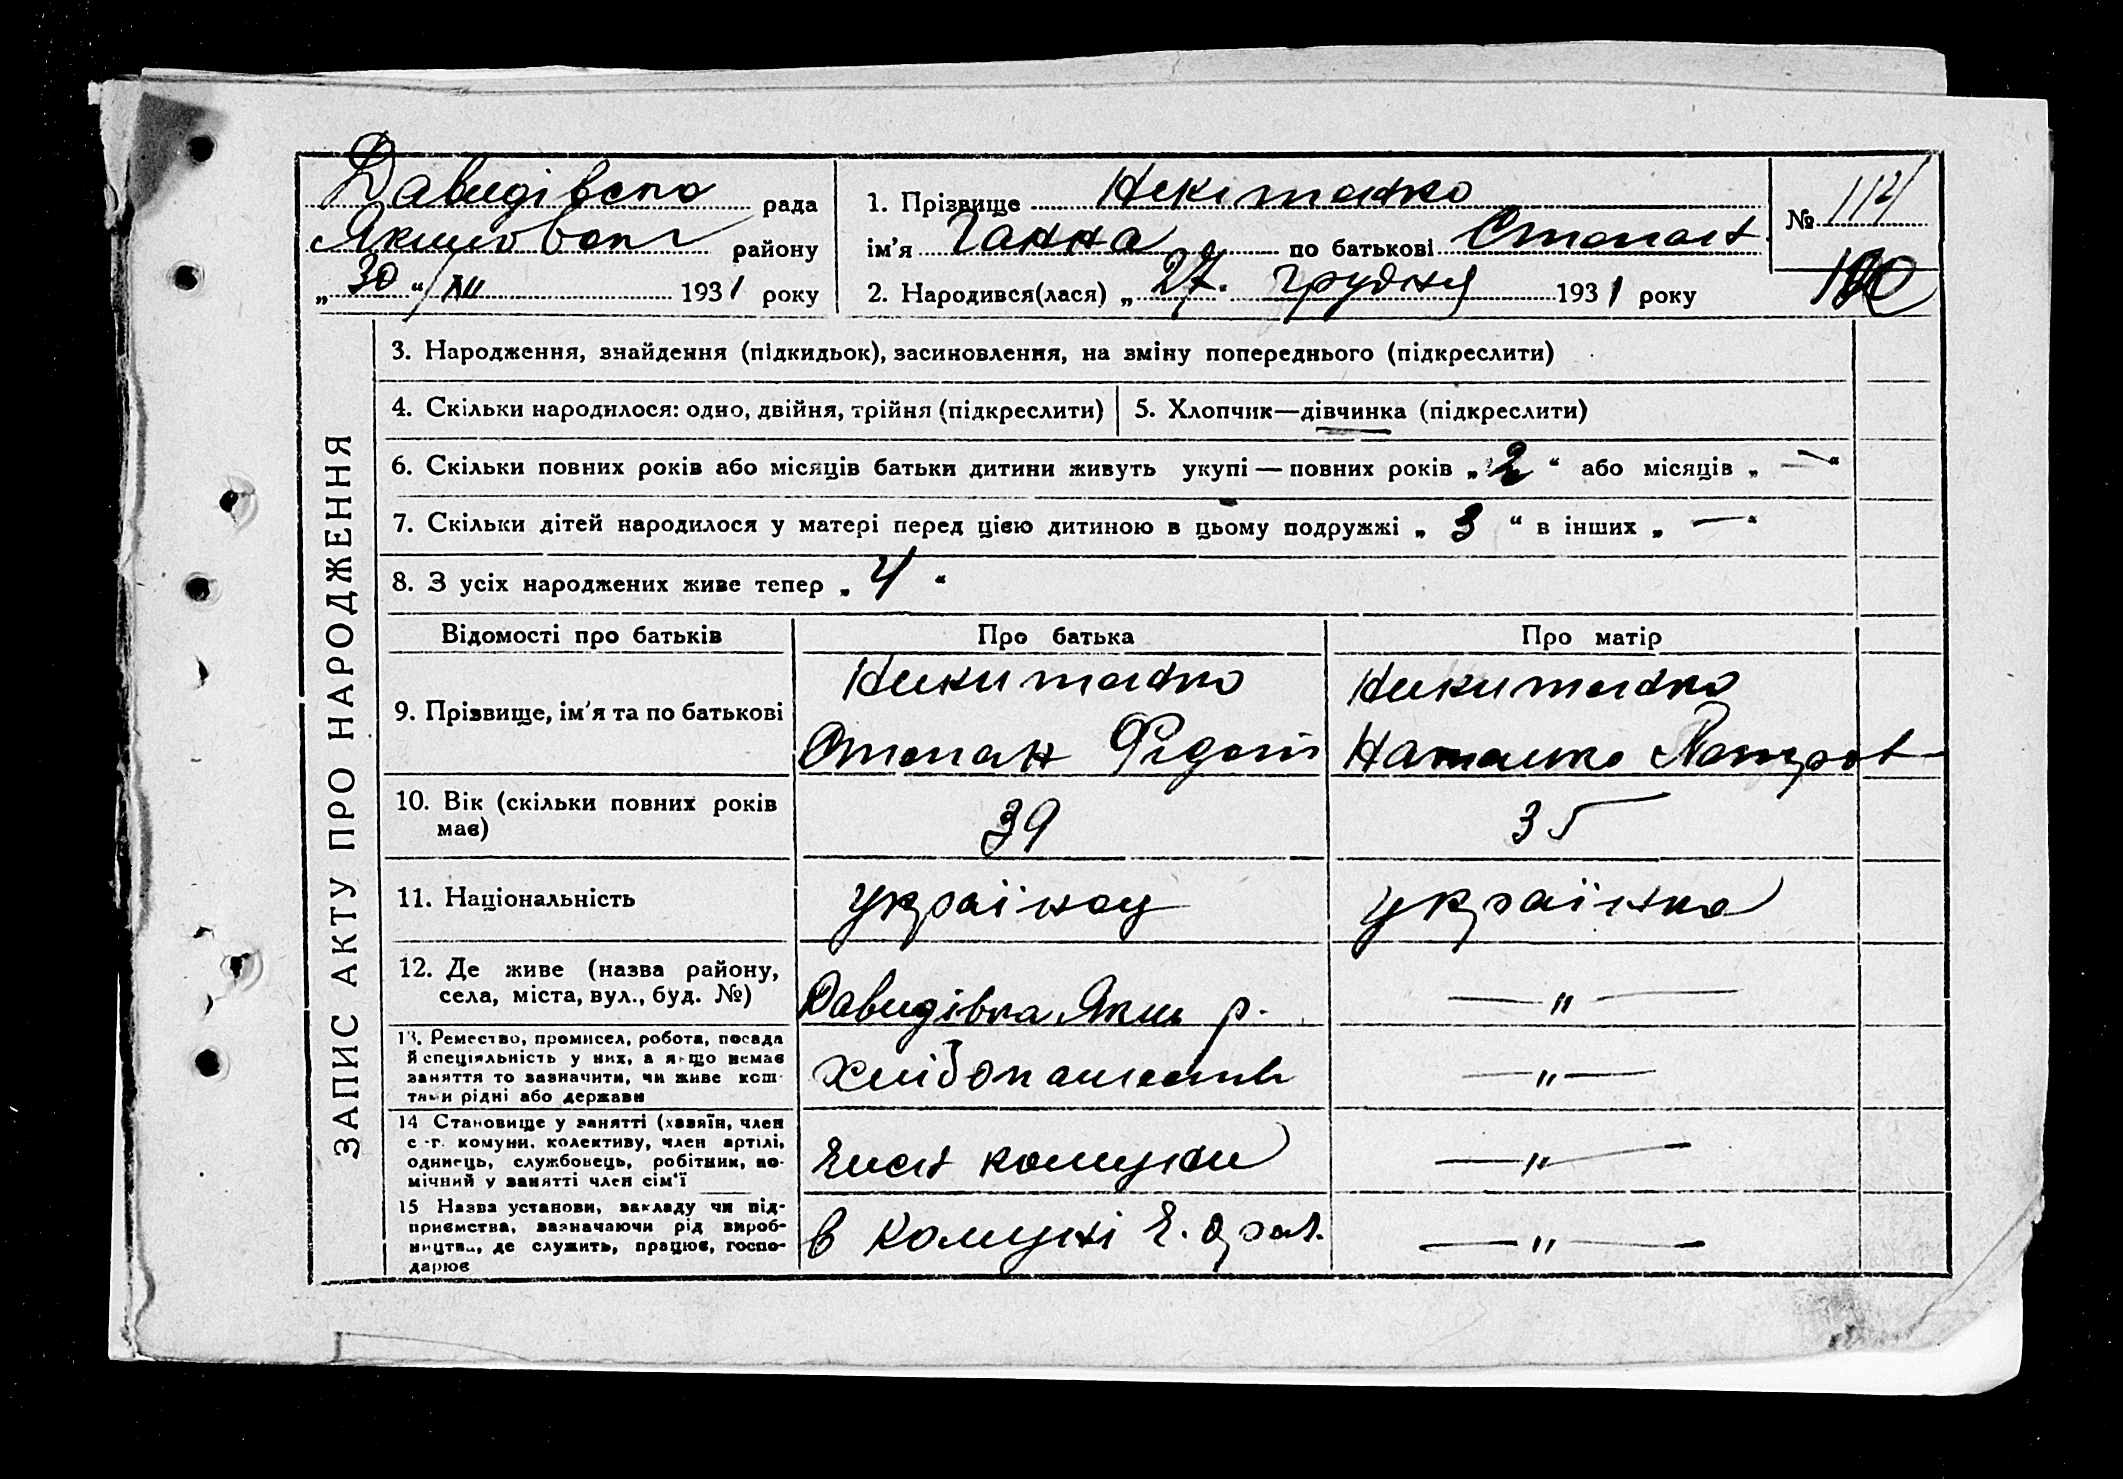 Давидівська рада
Якимовськ району
„30“ XII 1931 року
1. Прізвище Некитенко
ім’я Ганна по батькові Степан
2. Народився(лася) „27. грудня 1931 року
№ 114
3. Народження, знайдення (підкидьок), засиновлення, на зміну попереднього (підкреслити)
4. Скільки народилося: одно, двійня, трійня (підкреслити)
5. Хлопчик—дівчинка (підкреслити)
6. Скільки повних років або місяців батьки дитини живуть укупі — повних років „ 2 “ або місяців „ — “
7. Скільки дітей народилося у матері перед цією дитиною в цьому подружжі „ 3 “ в інших „ — “
8. З усіх народжених живе тепер „ 4 “
ЗАПИС АКТУ ПРО НАРОДЖЕННЯ
Відомості про батьків
Про батька
Про матір
9. Прізвище, ім’я та по батькові
Никитенко
Степан Федот
Никитенко
Наталка Петров
10. Вік (скільки повних років
має)
39
35
11. Національність
українец
українка
12. Де живе (назва району,
села, міста, вул., буд. №)
Давидівка Яким р.
— " —
13. Ремество, промисел, робота, посада
й спеціяльність у них, а якщо немає
заняття то зазначити, чи живе кош-
тами рідні або держави
Хлібопашест
— " —
14 Становище у занятті (хазяїн, член
с.-г. комуни, колективу, член артілі,
одинець, службовець, робітник, по-
мічний у занятті член сім’ї
Член комуни
— " —
15 Назва установи, закладу чи під-
приємства, зазначаючи рід вироб-
ництва, де служить, працює, госпо-
дарює
в комуні
— " —